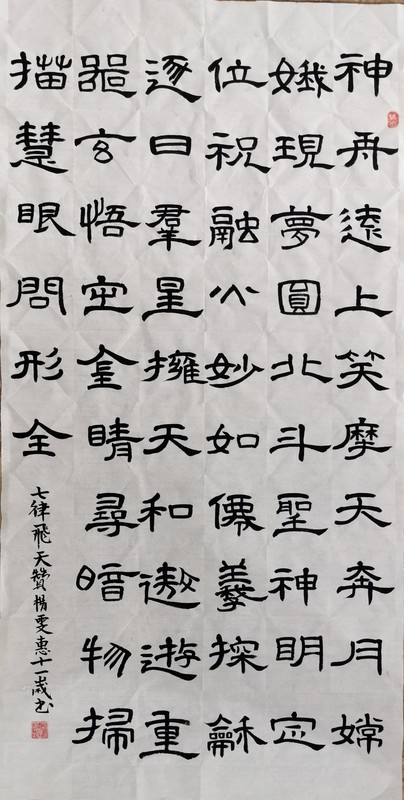 神舟遠上笑摩天奔月嫦
娥現夢圓北斗聖神明定
位祝融火妙如僊羲探龢
逐日羣星擁天和遨遊重
噐玄悟空金睛尋暗物掃
描慧眼問形全
七律飛天贊楊雯惠十一歲书